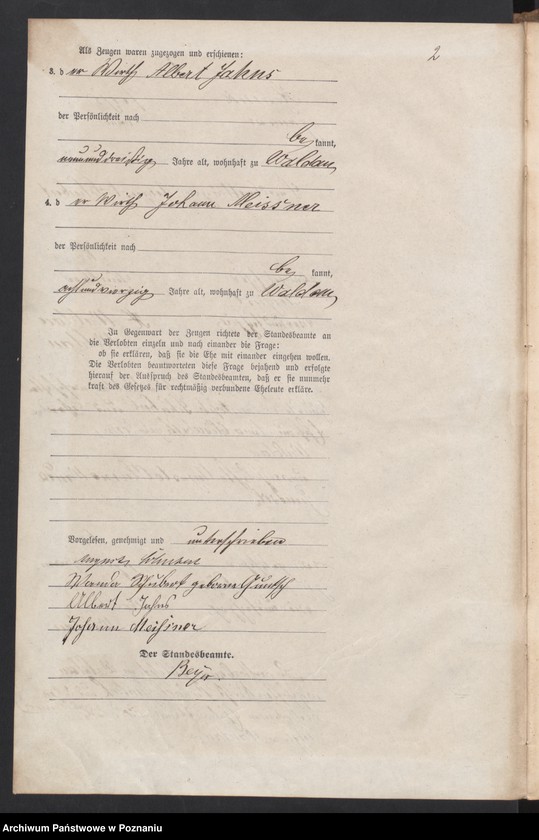 2
Als Zeugen waren zugezogen und erschienen:
3. der Wirth Albert Jahns
der Persönlichkeit nach
be kannt,
neununddreißig Jahre alt, wohnhaft zu Waldau
4. der Wirth Johann Meissner
der Persönlichkeit nach
be kannt,
achtundvierzig Jahre alt, wohnhaft zu Waldau
In Gegenwart der Zeugen richtete der Standesbeamte an
die Verlobten einzeln und nach einander die Frage:
ob sie erklären, daß sie die Ehe mit einander eingehen wollen.
Die Verlobten beantworteten diese Frage bejahend und erfolgte
hierauf der Ausspruch des Standesbeamten, daß er sie nunmehr
kraft des Gesetzes für rechtmäßig verbundene Eheleute erkläre.
Vorgelesen, genehmigt und unterschrieben
Wanda Schubert geborene
Albert Jahns
Johann Meißner
Der Standesbeamte.
Archiwum Państwowe w Poznaniu